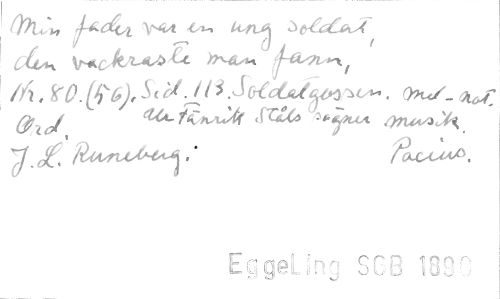 Min fader var en ung soldat,
den vackraste man fann,
Nr. 80. (56). Sid. 113. Soldatgossen. mel-not.
Ord. Ur Fänrik Ståls sägner musik.
J. L. Runeberg. Pacius.
EggeLing SGB 1890